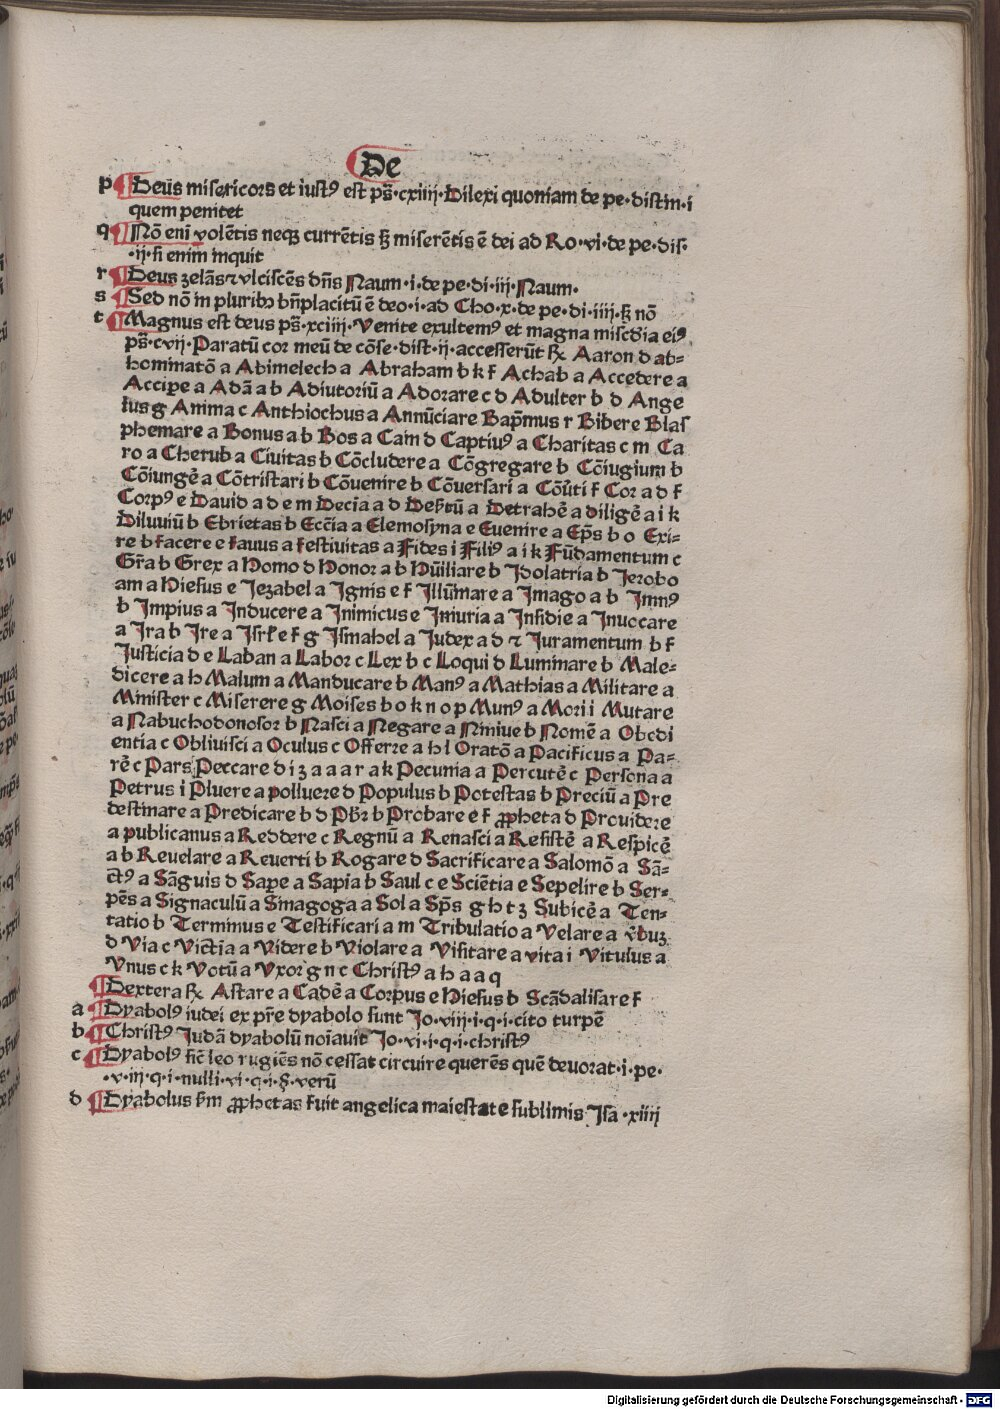 De
p Deus misericors et iustꝰ est ps̄·cxiiij·Dilexi quoniam de pe·distin·i
quem penitet
q Nō enī volētis neqꝫ currētis sꝫ miserētis ē dei ad Ro·vi·de pe·dis·
·ij·si enim inquit
r Deus zelās ⁊ vlciscēs dn̄s Naum·i·de pe·di·iij·Naum·
s Sed nō in pluribꝫ bn̄placitū ē deo·i·ad Cho·x·de pe·di·iiij·sꝫ nō
t Magnus est deus ps̄·xciiij·Venite exultemꝰ et magna misc̄dia eiꝰ
ps̄·cvij·Paratū cor meū de cōse·dist·ij·accesserūt ℞ Aaron d ab⸗
hominatō a Abimelech a Abraham b k f Achab a Accedere a
Accipe a Adā a b Adiutoriū a Adorare c d Adulter b d Ange
lus g Anima c Anthiochus a Annūciare Bap̄mus r Bibere Blas
phemare a Bonus a b Bos a Cain d Captiuꝰ a Charitas c m Ca
ro a Cherub a Ciuitas b Cōcludere a Cōgregare b Cōiugium b
Cōiungē a Cōtristari b Cōuenire b Cōuersari a Cōu̇ti f Cor a d f
Corpꝰ e Dauid a d e m Decīa a d Des̄tū a Detrahē a diligē a i k
Diluuiū b Ebrietas b Ecc̄ia a Elemosyna e Euenire a Ep̄s b o Exi⸗
re b facere e fauus a festiuitas a Fides i Filiꝰ a i k Fūdamentum c
Gr̄a b Grex a Homo d Honor a b Hūiliare b Idolatria b Ierobo
am a Hiesus e Iezabel a Ignis e f Illūmare a Imago a b Imnꝰ
b Impius a Inducere a Inimicus e Iniuria a Insidie a Inuocare
a Ira b Ire a Isrl̄ e f g Ismahel a Iudex a d ⁊ Iuramentum b f
Iusticia d e Laban a Labor c Lex b c Loqui d Luminare b Male⸗
dicere a h Malum a Manducare b Manꝰ a Mathias a Militare a
Minister c Miserere g Moises b o k n o p Munꝰ a Mori i Mutare
a Nabuchodonosor b Nasci a Negare a Niniue b Nomē a Obedi
entia c Obliuisci a Oculus c Offerre a h l Oratō a Pacificus a Pa⸗
rē c Pars Peccare d i z a a a r a k Pecunia a Percutē c Persona a
Petrus i Pluere a polluere d Populus b Potestas b Preciū a Pre
destinare a Predicare b d Pb̄r b Probare e f ꝓpheta d Prouidere
a publicanus a Reddere c Regnū a Renasci a Resistē a Respicē
a b Reuelare a Reuerti b Rogare d Sacrificare a Salomō a Sā⸗
ct̄ꝰ a Sāguis d Sape a Sapia b Saul c e Sciētia e Sepelire b Ser⸗
pēs a Signaculū a Sinagoga a Sol a Sp̄s g h t z Subicē a Ten⸗
tatio b Terminus e Testificari a m Tribulatio a Velare a v̇buꝫ
d Via c Vict̄ia a Videre b Violare a Visitare a vita i Vitulus a
Vnus c k Votū a Vxor g n c Christꝰ a h a a q
Dextera ℞ Astare a Cadē a Corpus e Hiesus b Scādalisare f
a Dyabolꝰ iudei ex pr̄e dyabolo sunt Io·viij·i·q·i·cito turpē
b Christꝰ Iudā dyabolū noīauit Io·vi·i·q·i·christꝰ
c Dyabolꝰ sic̄ leo rugiēs nō cessat circuire querēs quē deuorat·i·pe·
·v·iij·q·i·nulli·vi·q·i·§·verū
d Dyabolus s̄m ꝓphetas fuit angelica maiestate sublimis Isa·xiiij
Digitalisierung gefördert durch die Deutsche Forschungsgemeinschaft - DFG